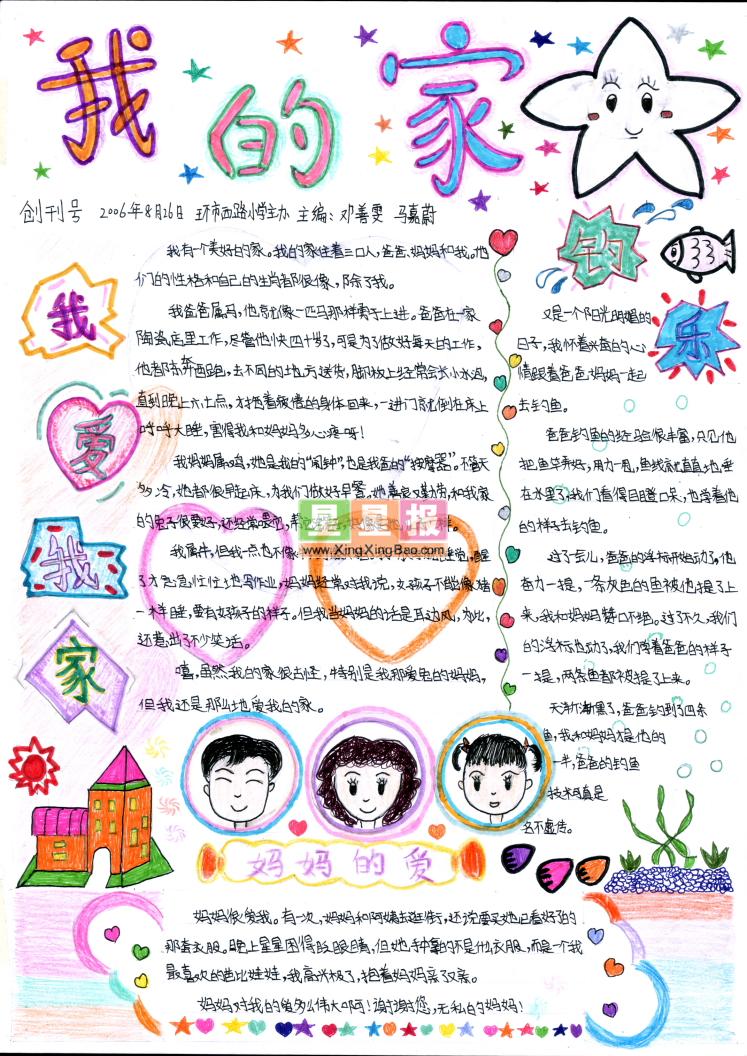 我的家
创刊号 2006年8月26日 环市西路小学主办 主编：邓善雯 马嘉蔚
我爱我家
我有个美好的家。我的家住着三口人，爸爸、妈妈和我。他
们的性格和自己的生肖都很像，除了我。
我爸爸属马，他就像一匹马那样勇于上进。爸爸在一家
陶瓷店里工作，尽管他快四十岁了，可是为了做好每天的工作，
他都东奔西跑，去不同的地方送货，脚板上经常会长小水泡，
直到晚上六七点，才拖着疲倦的身体回来，一进门就倒在床上
呼呼大睡，害得我和妈妈多心疼呀！
我妈妈属鸡，她是我的“闹钟”，也是我爸的“按摩器”。不管天
多冷，她都很早起床，为我们做好早餐。她善良又勤劳，和我家
的兔子很要好，还经常喂
星星报
www.XingXingBao.com
我属牛，但我一点也不像
了才急急忙忙地写作业，妈妈经常对我说，女孩子不能像猪
一样睡，要有女孩子的样子。但我当妈妈的话是耳边风，为此，
还惹出了不少笑话。
嘻，虽然我的家很古怪，特别是我那爱鬼的妈妈，
但我还是那么地爱我的家。
钓乐
又是一个阳光明媚的
日子，我怀着兴奋的心
情跟着爸爸妈妈一起
去钓鱼。
爸爸钓鱼的经验很丰富，只见他
把鱼竿弄好，用力一甩，鱼线就直直地垂
在水里了，我们看得目瞪口呆，也学着他
的样子去钓鱼。
过了会儿，爸爸的浮标开始动了，他
奋力一提，一条灰色的鱼被他提了上
来，我和妈妈赞口不绝。过了不久，我们
的浮标也动了，我们学着爸爸的样子
一提，两条鱼都被提了上来。
天渐渐黑了，爸爸钓到了四条
鱼，我和妈妈才是他的
一半，爸爸的钓鱼
技术真是
名不虚传。
妈妈的爱
妈妈很爱我。有一次，妈妈和阿姨去逛街，还说要买她已看好了的
那套衣服。晚上星星困得眨眼睛，但她手中拿的不是什么衣服，而是一个我
最喜欢的芭比娃娃，我高兴极了，抱着妈妈亲了又亲。
妈妈对我的爱多么伟大啊！谢谢您，无私的妈妈！